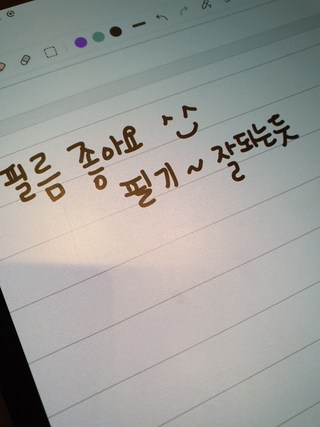 필름 좋아요 ^^
필기 ~ 잘되는듯